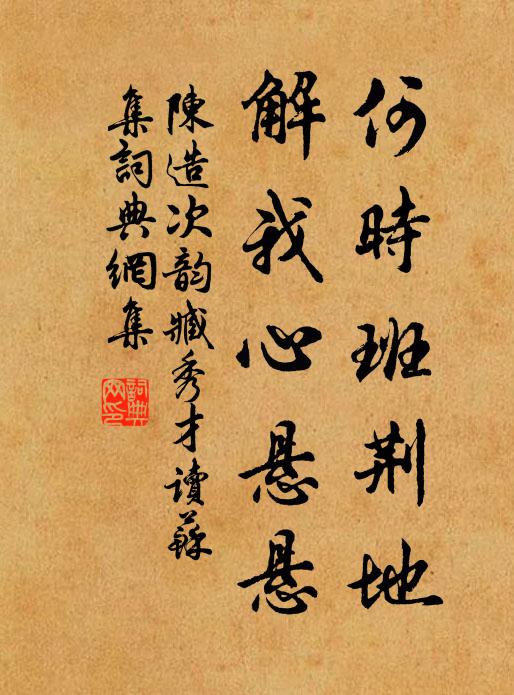 何時班荆地
解我心悬悬
陳造次韵臧秀才讀蘇
集詞典網集
詞典
网印